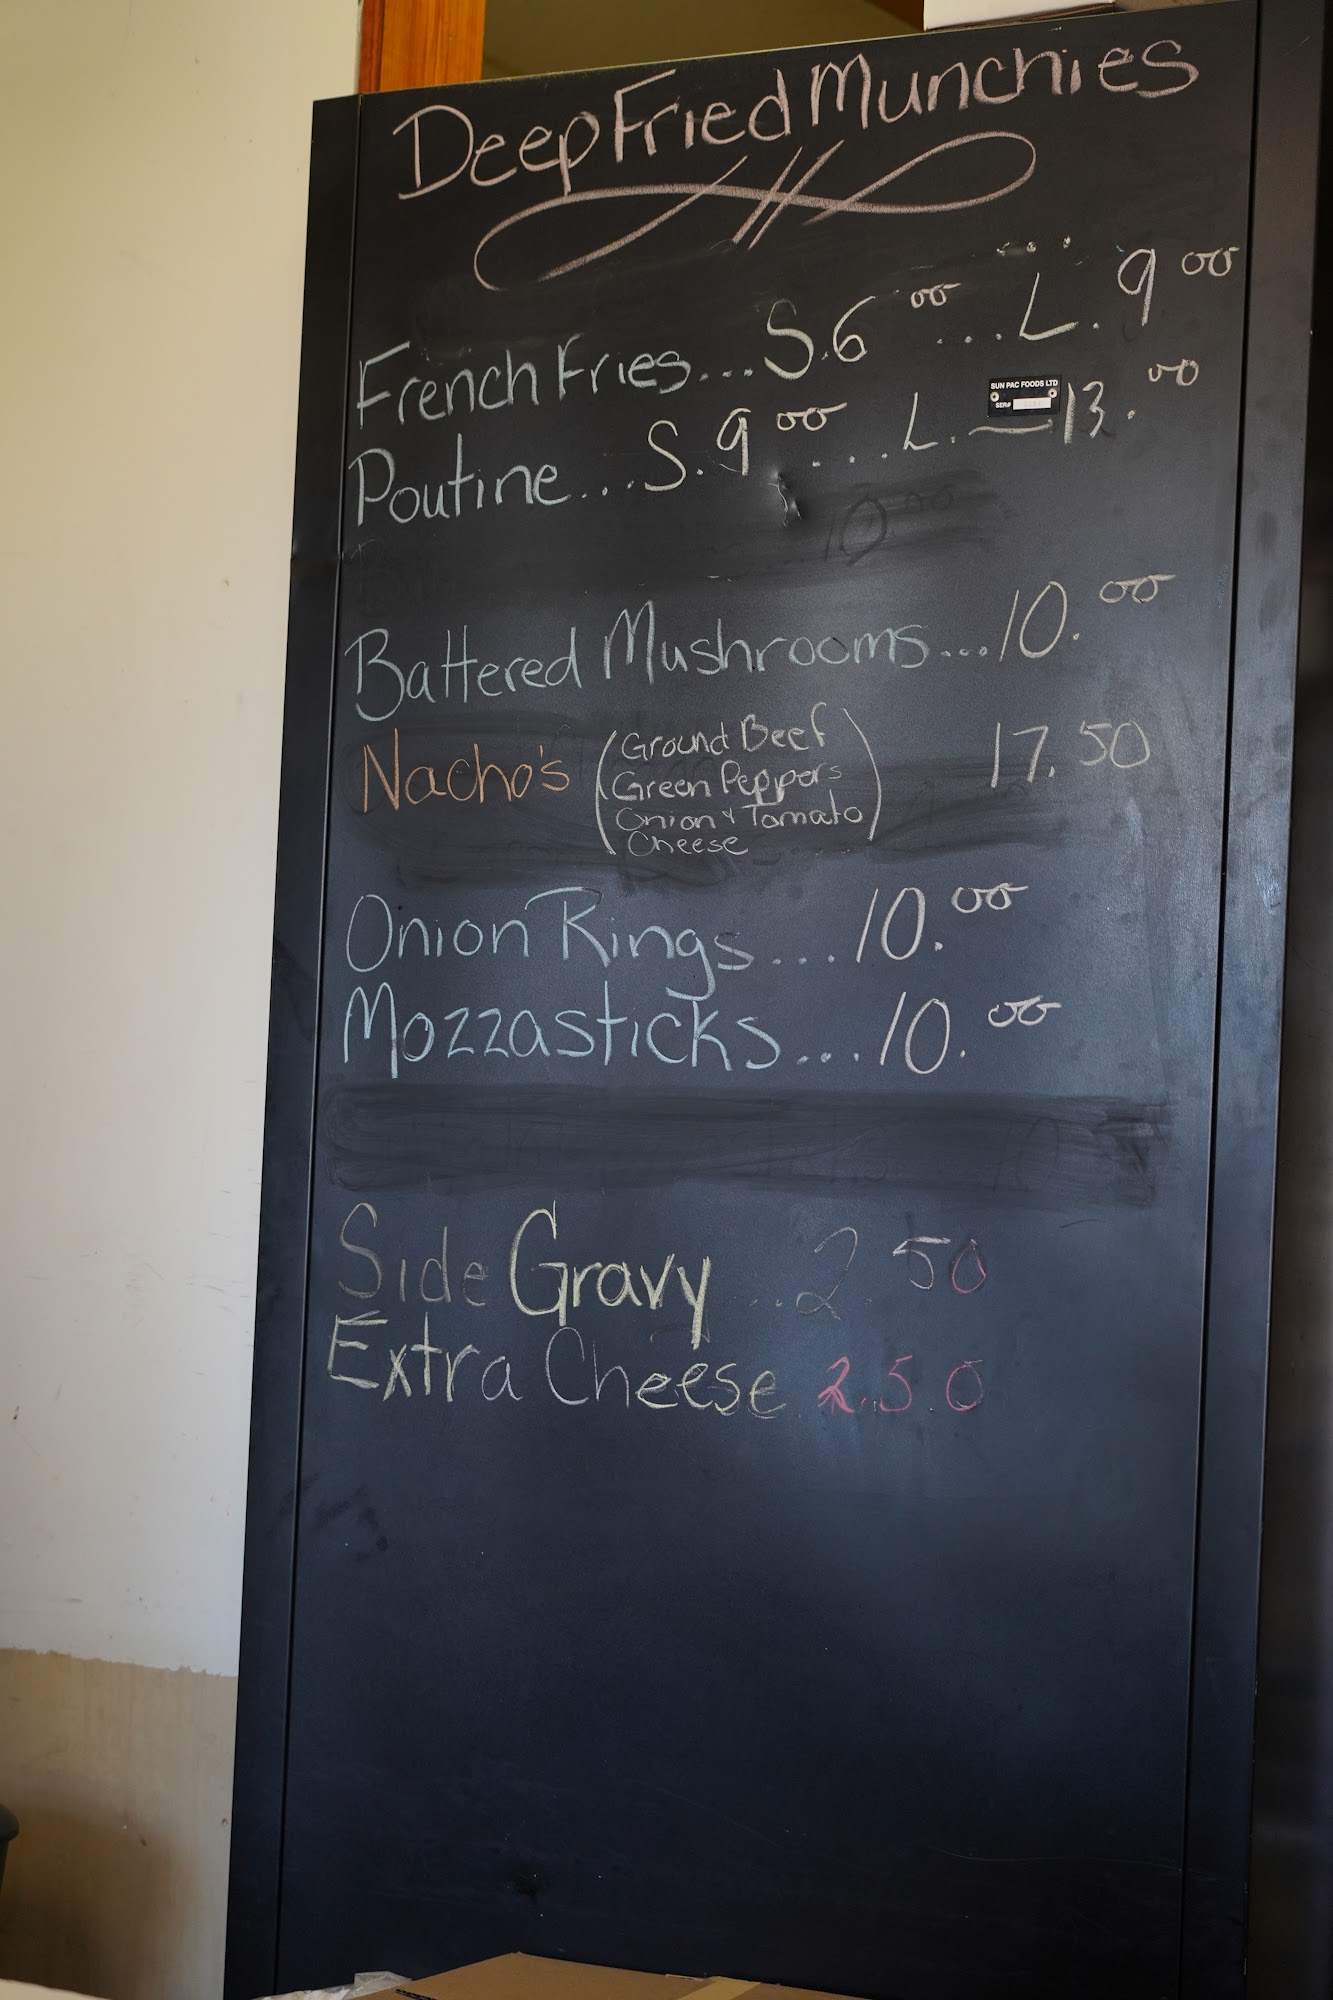 Deep Fried Munchies
French Fries...S.6 00 ....L. 9 00
SUN PAC FOODS LTD
SER#
Poutine...S.9 00 ....L. 13.00
Battered Mushrooms...10.00
Nacho's (Ground Beef 17.50
Green Peppers
Onion & Tomato
Cheese)
Onion Rings...10.00
Mozzasticks...10.00
Side Gravy...2.50
Extra Cheese 2.50